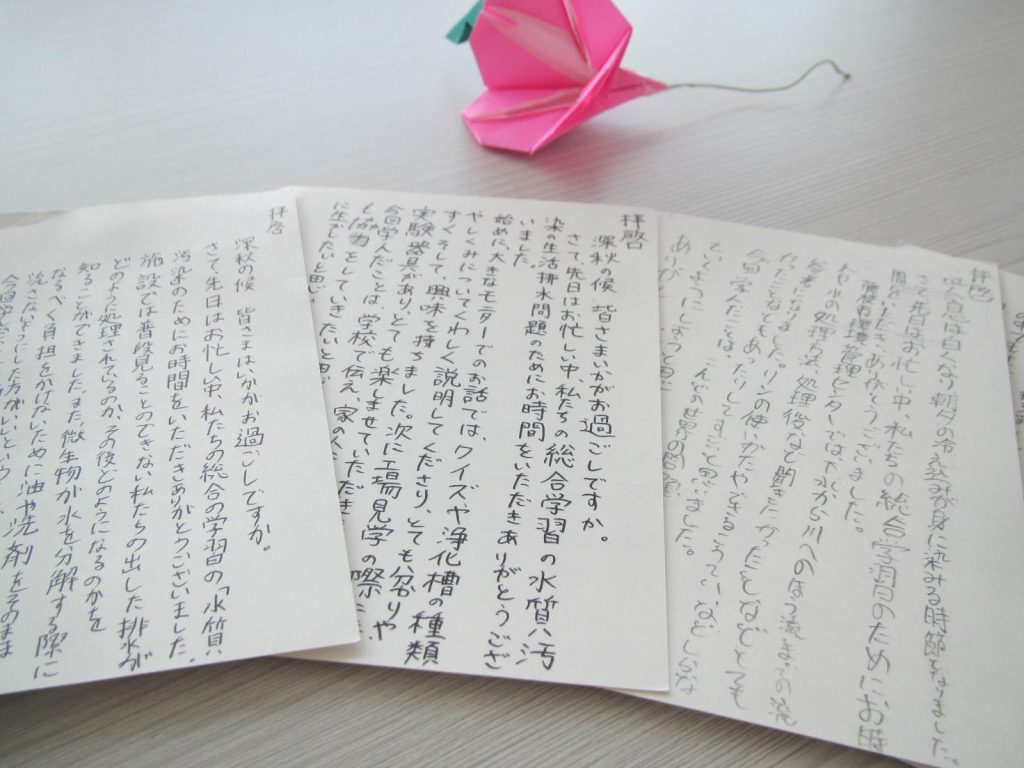 拝啓
息は白くなり朝夕の冷え込みが身に染みる時節となりました。
さて先日はお忙しい中、私たちの総合学習のためにお時
間をいただき、ありがとうございました。
環境管理センターでは下水から川へのほう流までの流
れや水の処理方法、処理後など聞きたかったことなどとても
参考になりました。リンの使いかたやできるこうていなどしらなか
ったことなどもあったりしてすごいと思いました。
今回学んだことは、こんどの世界の問題
ていくようにしようと思い
ありがと
拝啓
深秋の候 皆さまいかがお過ごしですか。
さて、先日はお忙しい中、私たちの総合学習の水質汚
染の生活排水問題のためにお時間をいただきありがとうござ
いました。
始めに、大きなモニターでのお話では、クイズや浄化槽の種類
やしくみについてくわしく説明してくださり、とても分かりや
すくそして、興味を持ちました。次に工場見学の際に、
実験器具があり、とても楽しませていただき
今回学んだことは、学校で伝え、家の人
も協力をしていきたいと思
に生かしたいと思い
拝啓
深秋の候 皆さまはいかがお過ごしですか。
さて、先日はお忙しい中、私たちの総合の学習の「水質
汚染のためにお時間をいただきありがとうございました。
施設では普段見ることのできない私たちの出した排水が
どのように処理されているのか、その後どのようになるのかを
知ることができました。また、微生物が水を分解する際に
なるべく負担をかけないために油や洗剤をそのまま
流さないようにした方がいいという
今回学んだこと